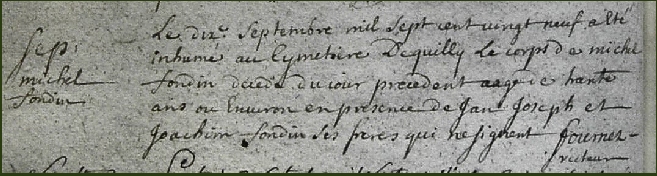 Sep.
michel
fondin
Le dix.e Septembre mil Sept cent vingt neuf a Eté
inhumé au Cymetoire Dequilly Le corps de michel
fondin decedé du jour precedent aagé de trante
ans ou Environ en presence de Jan Joseph et
Joachim fondin ses freres qui ne signent fournet
recteur